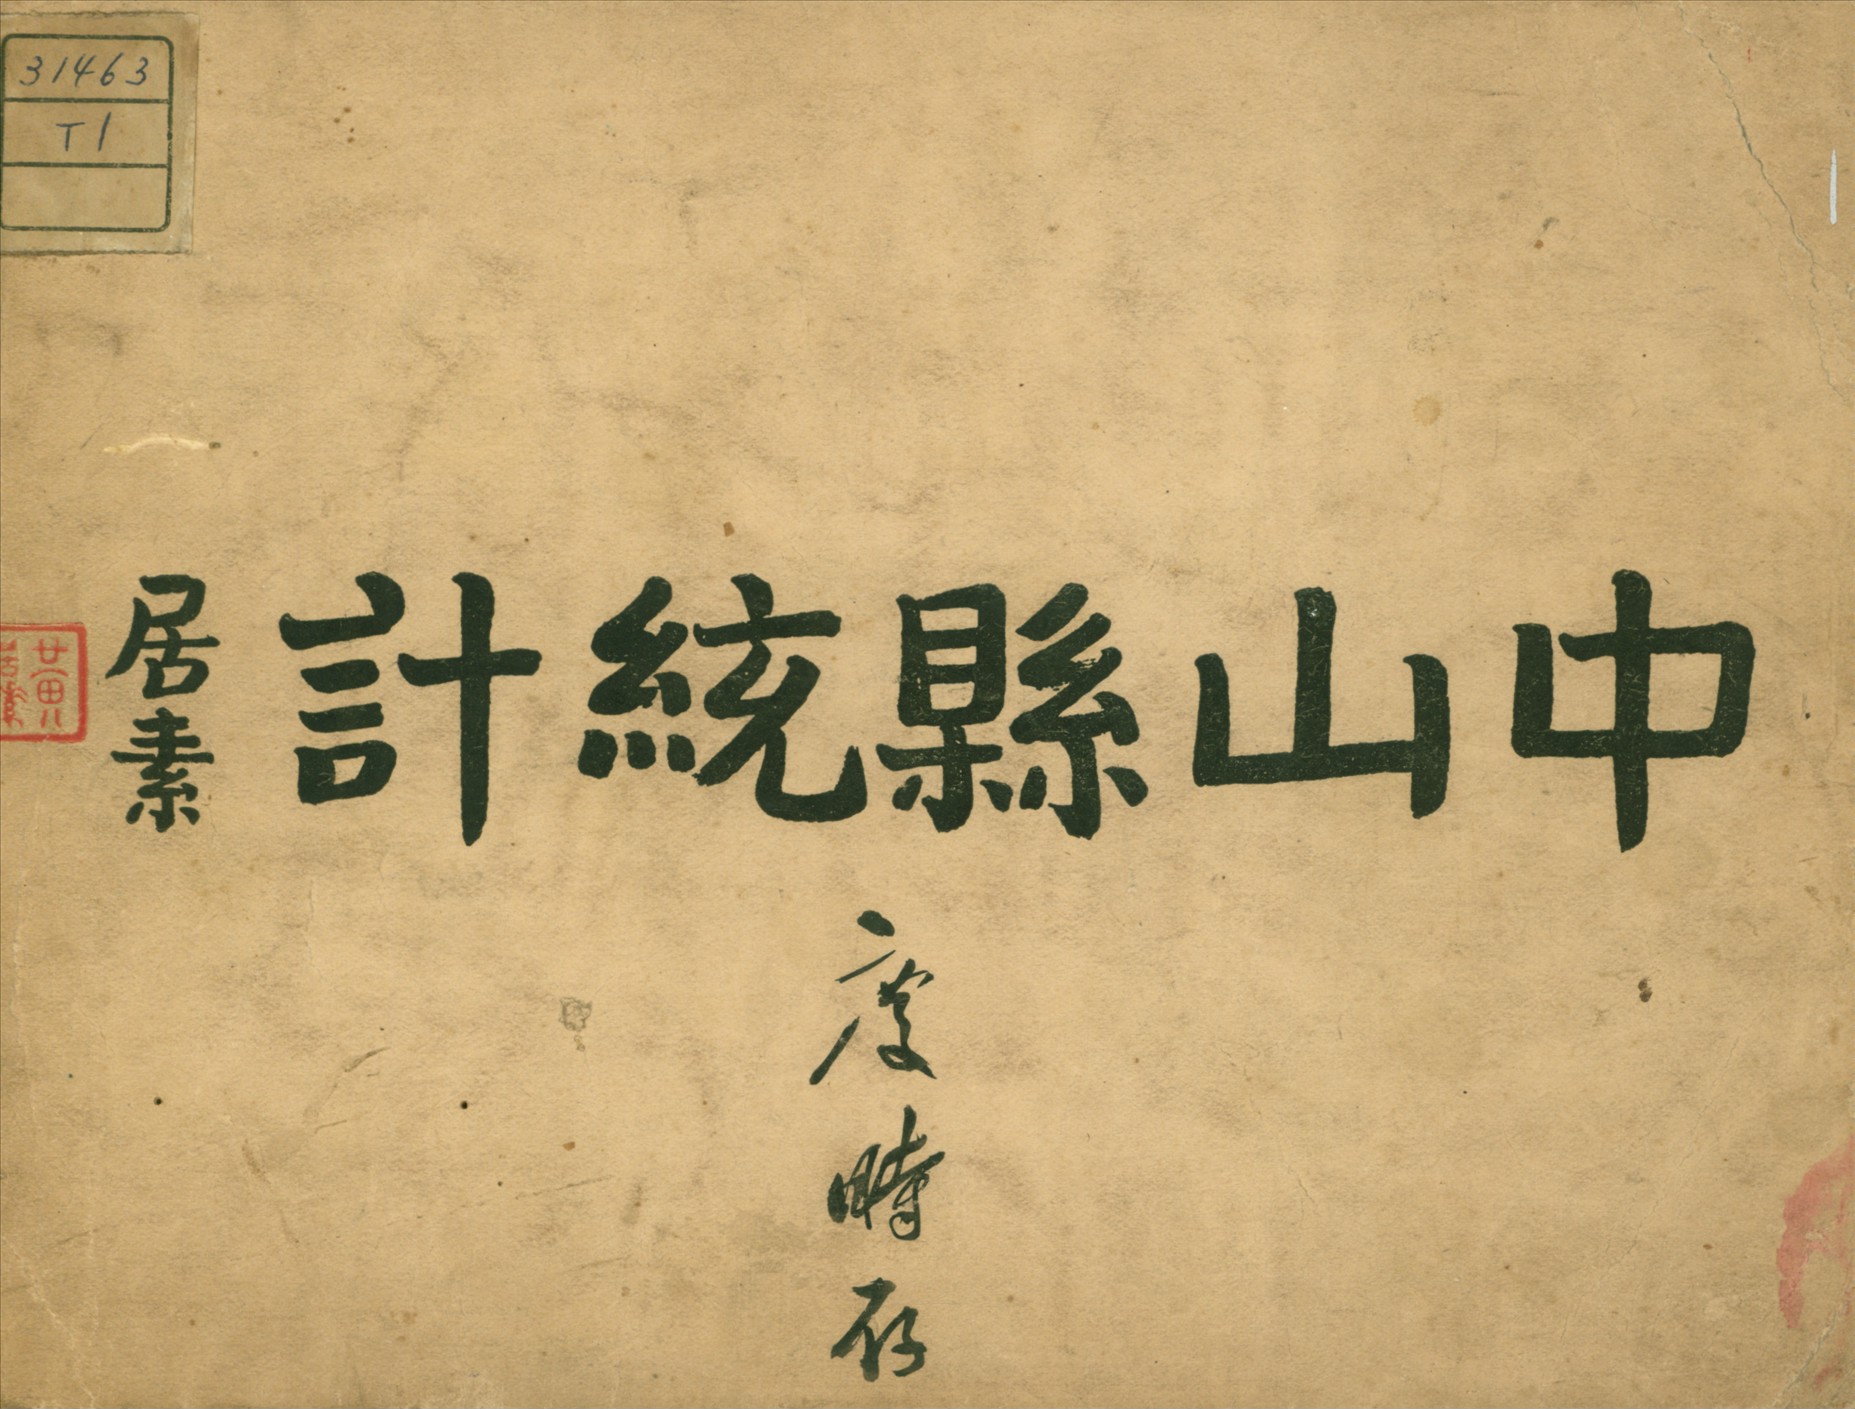 31463
T1
中山縣統計
居素
黃居素
時存